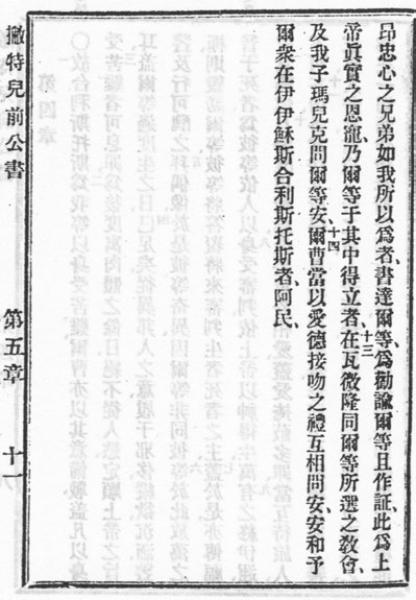 昂忠心之兄弟如我所以爲者、書達爾等、爲勸諭爾等且作証、此爲上
帝眞實之恩寵、乃爾等于其中得立者、十三在瓦微隆同爾等所選之敎會、
及我子瑪兒克問爾等安、十四爾曹當以愛德接吻之禮互相問安、安和予
爾衆在伊伊穌斯合利斯托斯者、阿民、
撇特兒前公書 第五章 十一